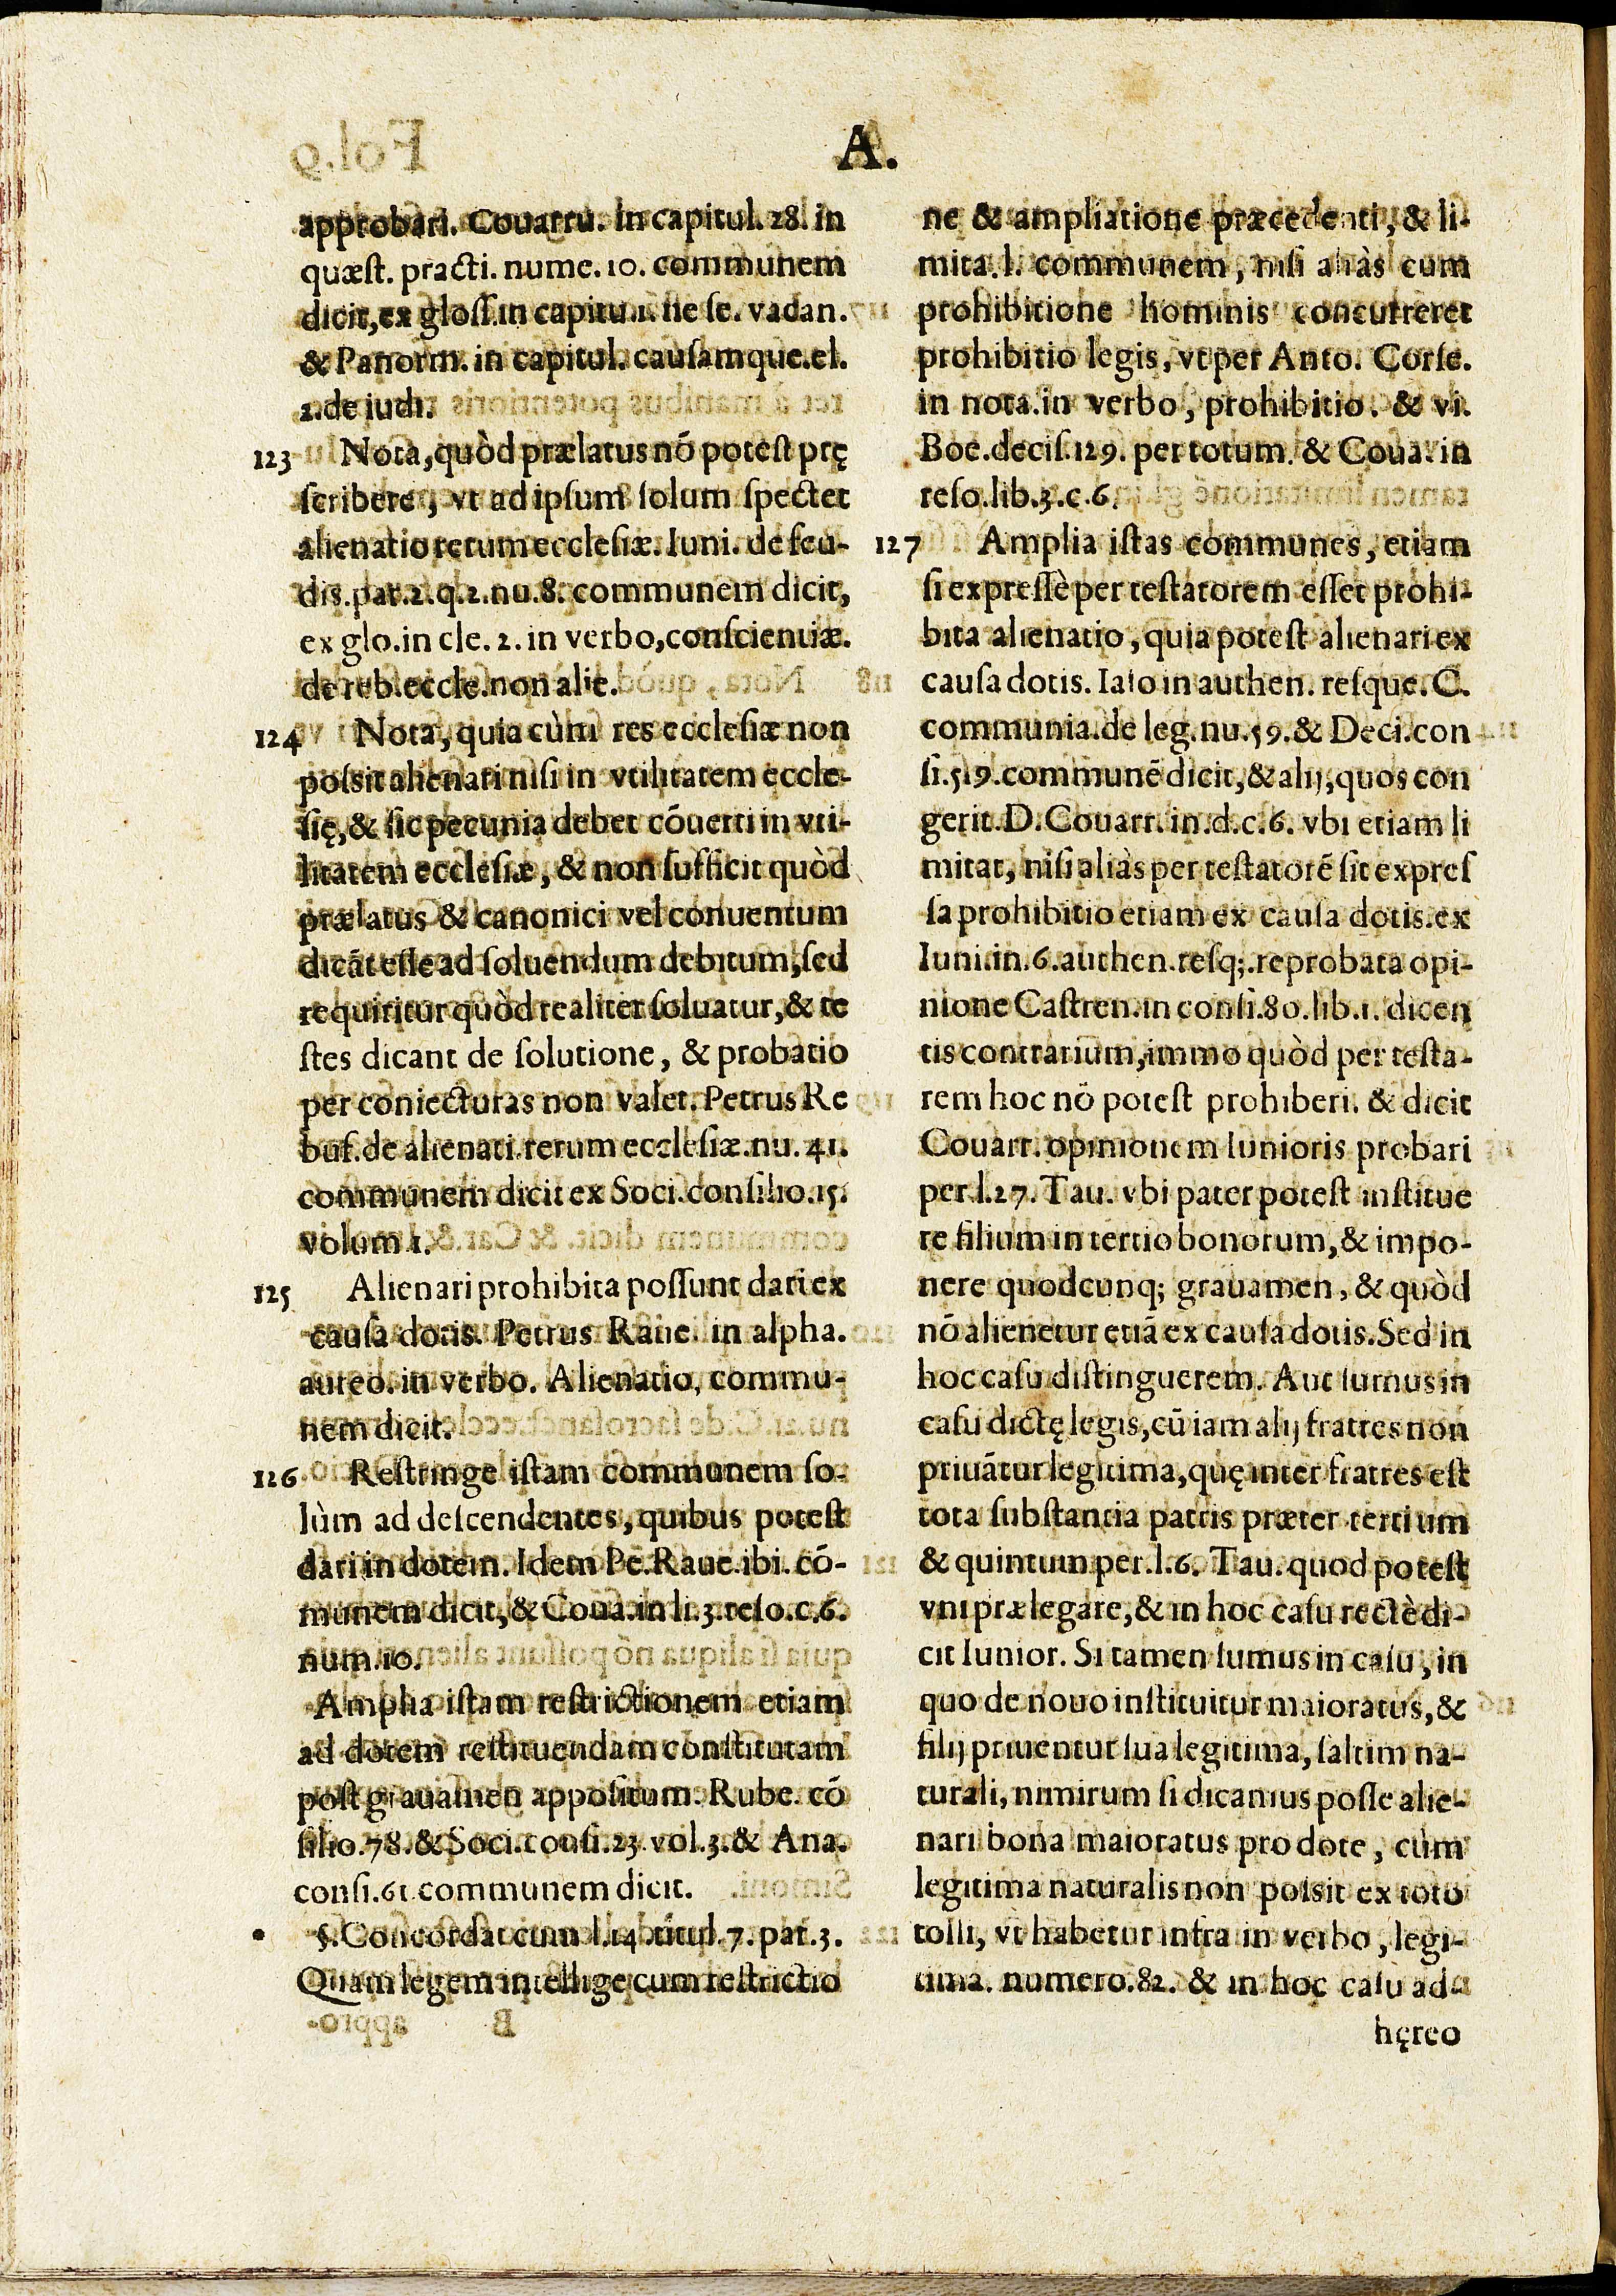 A.
approbari. Couarru. in capitul. 28. in
quæst. practi. nume. 10. communem
dicit, ex gloss. in capitu. 1. ne se. vadan.
& Panorm. in capitul. causamque. el.
2. de iudi.
123 Nota, quòd prælatus nō potest prę
scribere, vt ad ipsum solum spectet
alienatio rerum ecclesiæ. Iuni. de feu-
dis. par. 2. q. 2. nu. 8. communem dicit,
ex glo. in cle. 2. in verbo, conscientiæ.
de reb. eccle. non alie.
124 Nota, quia cùm res ecclesiæ non
possit alienari nisi in vtilitatem eccle-
się, & sic pecunia debet cōuerti in vti-
litatem ecclesiæ, & non sufficit quòd
prælatus & canonici vel conuentum
dicāt esse ad soluendum debitum, sed
requiritur quòd realiter soluatur, & te
stes dicant de solutione, & probatio
per coniecturas non valet. Petrus Re
buf. de alienati. rerum ecclesiæ. nu. 41.
communem dicit ex Soci. consilio. 15.
volum. 1.
125 Alienari prohibita possunt dari ex
causa dotis. Petrus Raue. in alpha.
aureo. in verbo. Alienatio, commu-
nem dicit.
126 Restringe istam communem so-
lùm ad descendentes, quibus potest
dari in dotem. Idem Pe. Raue. ibi. cō-
munem dicit, & Coua. in li. 3. reso. c. 6.
num. 10.
Amplia istam restrictionem etiam
ad dotem restituendam constitutam
post grauamen appositum. Rube. cō
silio. 78. & Soci. consi. 23. vol. 3. & Ana.
consi. 61. communem dicit.
§. Concordat cum l. 14. titul. 7. par. 3.
Quam legem intellige cum restrictio
ne & ampliatione præcedenti, & li-
mita. l. communem, nisi aliàs cum
prohibitione hominis concurreret
prohibitio legis, vt per Anto. Corse.
in nota. in verbo, prohibitio. & vi.
Boe. decis. 129. per totum. & Coua. in
reso. lib. 3. c. 6.
127 Amplia istas communes, etiam
si expressè per testatorem esset prohi-
bita alienatio, quia potest alienari ex
causa dotis. Iaso in authen. resque. C.
communia. de leg. nu. 59. & Deci. con
si. 519. communē dicit, & alij, quos con
gerit. D. Couarr. in. d. c. 6. vbi etiam li
mitat, nisi aliàs per testatorē sit expres
sa prohibitio etiam ex causa dotis. ex
Iuni. in. 6. authen. resq;. reprobata opi-
nione Castren. in consi. 80. lib. 1. dicen
tis contrarium, immo quòd per testa-
rem hoc nō potest prohiberi. & dicit
Couarr. opinionem Iunioris probari
per. l. 27. Tau. vbi pater potest institue
re filium in tertio bonorum, & impo-
nere quodcunq; grauamen, & quòd
nō alienetur etiā ex causa dotis. Sed in
hoc casu distinguerem. Aut sumus in
casu dictę legis, cū iam alij fratres non
priuātur legitima, quę inter fratres est
tota substantia patris præter tertium
& quintum per. l. 6. Tau. quod potest
vni prælegare, & in hoc casu rectè di-
cit Iunior. Si tamen sumus in casu, in
quo de nouo instituitur maioratus, &
filij priuentur sua legitima, saltim na-
turali, nimirum si dicamus posse alie-
nari bona maioratus pro dote, cùm
legitima naturalis non possit ex toto
tolli, vt habetur infra in verbo, legi-
tima. numero. 82. & in hoc casu ad-
hęreo